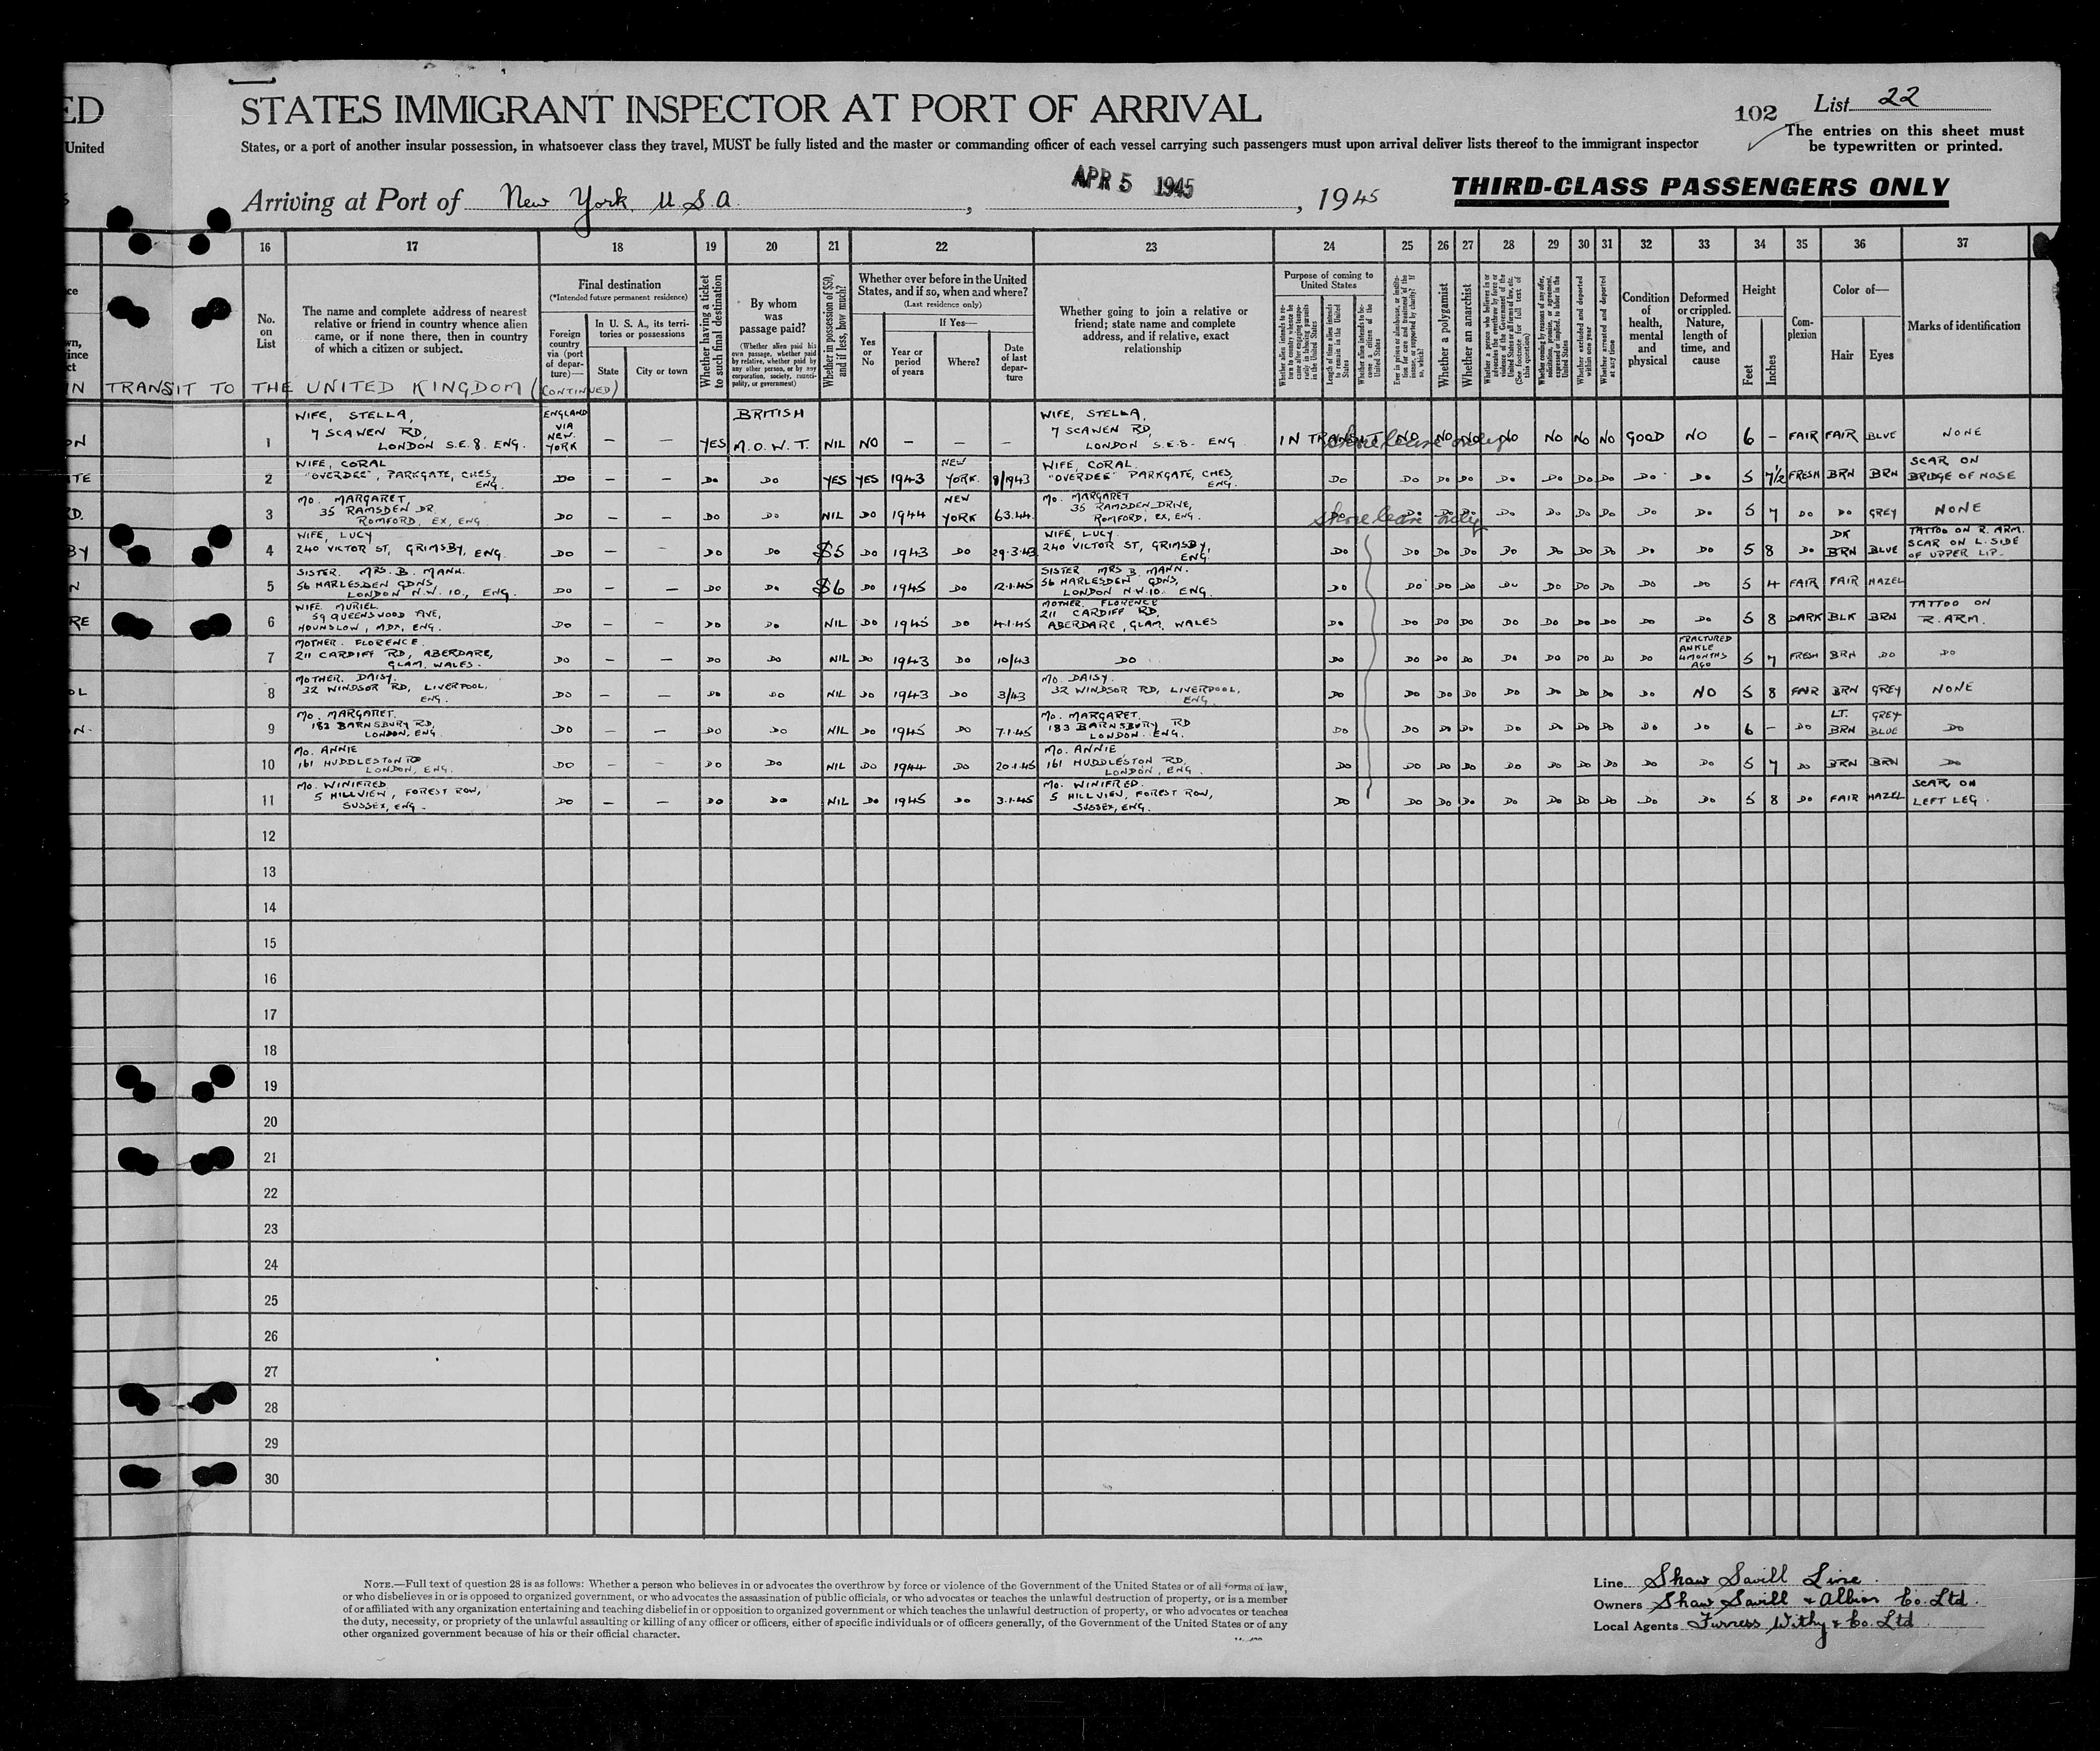 ED
STATES IMMIGRANT INSPECTOR AT PORT OF ARRIVAL
102
List 22
United
States, or a port of another insular possession, in whatsoever class they travel, MUST be fully listed and the master or commanding officer of each vessel carrying such passengers must upon arrival deliver lists thereof to the immigrant inspector
The entries on this sheet must
be typewritten or printed.
Arriving at Port of New York, U.S.A. , APR 5 1945 , 1945
THIRD-CLASS PASSENGERS ONLY
16 17 18 19 20 21 22 23 24 25 26 27 28 29 30 31 32 33 34 35 36 37
No.
on
List
The name and complete address of nearest
relative or friend in country whence alien
came, or if none there, then in country
of which a citizen or subject.
Final destination
(*Intended future permanent residence)
Foreign
country
via (port
of depar-
ture)—
In U. S. A., its terri-
tories or possessions
State
City or town
Whether having a ticket
to such final destination
By whom
was
passage paid?
(Whether alien paid his
own passage, whether paid
by relative, whether paid by
any other person, or by any
corporation, society, munici-
pality, or government)
Whether in possession of $50,
and if less, how much?
Whether ever before in the United
States, and if so, when and where?
(Last residence only)
Yes
or
No
If Yes—
Year or
period
of years
Where?
Date
of last
depar-
ture
Whether going to join a relative or
friend; state name and complete
address, and if relative, exact
relationship
Purpose of coming to
United States
Whether alien intends to re-
turn to country whence he
came after engaging tempo-
rarily in laboring pursuits
in the United States
Length of time alien intends
to remain in the United
States
Whether alien intends to be-
come a citizen of the
United States
Ever in prison or almshouse, or institu-
tion for care and treatment of the
insane, or supported by charity? If
so, which?
Whether a polygamist
Whether an anarchist
Whether a person who believes in or
advocates the overthrow by force or
violence of the Government of the
United States or all forms of law, etc.
(See footnote for full text of
this question)
Whether coming by reason of any offer,
solicitation, promise, or agreement,
expressed or implied, to labor in the
United States
Whether excluded and deported
within one year
Whether arrested and deported
at any time
Condition
of
health,
mental
and
physical
Deformed
or crippled.
Nature,
length of
time, and
cause
Height
Feet
Inches
Com-
plexion
Color of—
Hair
Eyes
Marks of identification
IN TRANSIT TO THE UNITED KINGDOM (CONTINUED)
1 WIFE, STELLA,
7 SCAWEN RD,
LONDON S.E.8. ENG.
ENGLAND
VIA
NEW
YORK
— — YES BRITISH
M.O.W.T. NIL NO — — —
WIFE, STELLA,
7 SCAWEN RD,
LONDON S.E.8. ENG
IN TRANSIT NO NO NO NO NO NO NO GOOD NO 6 — FAIR FAIR BLUE NONE
shore leave only
2 WIFE, CORAL
"OVERDEE", PARKGATE, CHES,
ENG.
DO — — DO DO YES YES 1943 NEW
YORK. 8/1943
WIFE, CORAL,
"OVERDEE" PARKGATE, CHES
ENG.
DO DO DO DO DO DO DO DO DO DO 5 7½ FRESH BRN BRN SCAR ON
BRIDGE OF NOSE
3 MO. MARGARET,
35 RAMSDEN DR.
ROMFORD, EX, ENG.
DO — — DO DO NIL DO 1944 NEW
YORK 6.3.44.
MO. MARGARET
35 RAMSDEN DRIVE,
ROMFORD, EX, ENG.
DO DO DO DO DO DO DO DO DO DO 5 7 DO DO GREY NONE
shore leave only
4 WIFE, LUCY
240 VICTOR ST, GRIMSBY, ENG.
DO — — DO DO $5 DO 1943 DO 29.3.43
WIFE, LUCY.
240 VICTOR ST, GRIMSBY,
ENG.
DO DO DO DO DO DO DO DO DO DO 5 8 DO DK
BRN BLUE TATTOO ON R. ARM.
SCAR ON L. SIDE
OF UPPER LIP.
5 SISTER. MRS. B. MANN.
56 HARLESDEN GDNS,
LONDON N.W.10., ENG.
DO — — DO DO $6 DO 1945 DO 12.1.45
SISTER MRS B MANN.
56 HARLESDEN GDNS,
LONDON N.W.10. ENG.
DO DO DO DO DO DO DO DO DO DO 5 4 FAIR FAIR HAZEL
6 WIFE, MURIEL.
59 QUEENSWOOD AVE,
HOUNSLOW, MDX, ENG.
DO — — DO DO NIL DO 1945 DO 4.1.45
MOTHER. FLORENCE
211 CARDIFF RD,
ABERDARE, GLAM. WALES
DO DO DO DO DO DO DO DO DO DO 5 8 DARK BLK BRN TATTOO ON
R. ARM.
7 MOTHER. FLORENCE.
211 CARDIFF RD, ABERDARE,
GLAM. WALES.
DO — — DO DO NIL DO 1943 DO 10/43
DO
DO DO DO DO DO DO DO DO DO FRACTURED
ANKLE
4 MONTHS
AGO 5 7 FRESH BRN DO DO
8 MOTHER. DAISY.
32 WINDSOR RD, LIVERPOOL,
ENG.
DO — — DO DO NIL DO 1943 DO 3/43
MO. DAISY.
32 WINDSOR RD, LIVERPOOL,
ENG.
DO DO DO DO DO DO DO DO DO NO 5 8 FAIR BRN GREY NONE
9 MO. MARGARET.
183 BARNSBURY RD,
LONDON, ENG.
DO — — DO DO NIL DO 1945 DO 7.1.45
MO. MARGARET.
183 BARNSBURY RD
LONDON. ENG.
DO DO DO DO DO DO DO DO DO DO 6 — DO LT.
BRN GREY
BLUE DO
10 MO. ANNIE
161 HUDDLESTON RD
LONDON, ENG.
DO — — DO DO NIL DO 1944 DO 20.1.45
MO. ANNIE,
161 HUDDLESTON RD,
LONDON, ENG.
DO DO DO DO DO DO DO DO DO DO 5 7 DO BRN BRN DO
11 MO. WINIFRED.
5 HILLVIEW, FOREST ROW,
SUSSEX, ENG.
DO — — DO DO NIL DO 1945 DO 3.1.45
MO. WINIFRED.
5 HILLVIEW, FOREST ROW,
SUSSEX, ENG.
DO DO DO DO DO DO DO DO DO DO 5 8 DO FAIR HAZEL SCAR ON
LEFT LEG.
12
13
14
15
16
17
18
19
20
21
22
23
24
25
26
27
28
29
30
NOTE.—Full text of question 28 is as follows: Whether a person who believes in or advocates the overthrow by force or violence of the Government of the United States or of all forms of law,
or who disbelieves in or is opposed to organized government, or who advocates the assassination of public officials, or who advocates or teaches the unlawful destruction of property, or is a member
of or affiliated with any organization entertaining and teaching disbelief in or opposition to organized government or which teaches the unlawful destruction of property, or who advocates or teaches
the duty, necessity, or propriety of the unlawful assaulting or killing of any officer or officers, either of specific individuals or of officers generally, of the Government of the United States or of any
other organized government because of his or their official character.
Line Shaw Savill Line.
Owners Shaw Savill & Albion Co. Ltd.
Local Agents Furness Withy & Co. Ltd